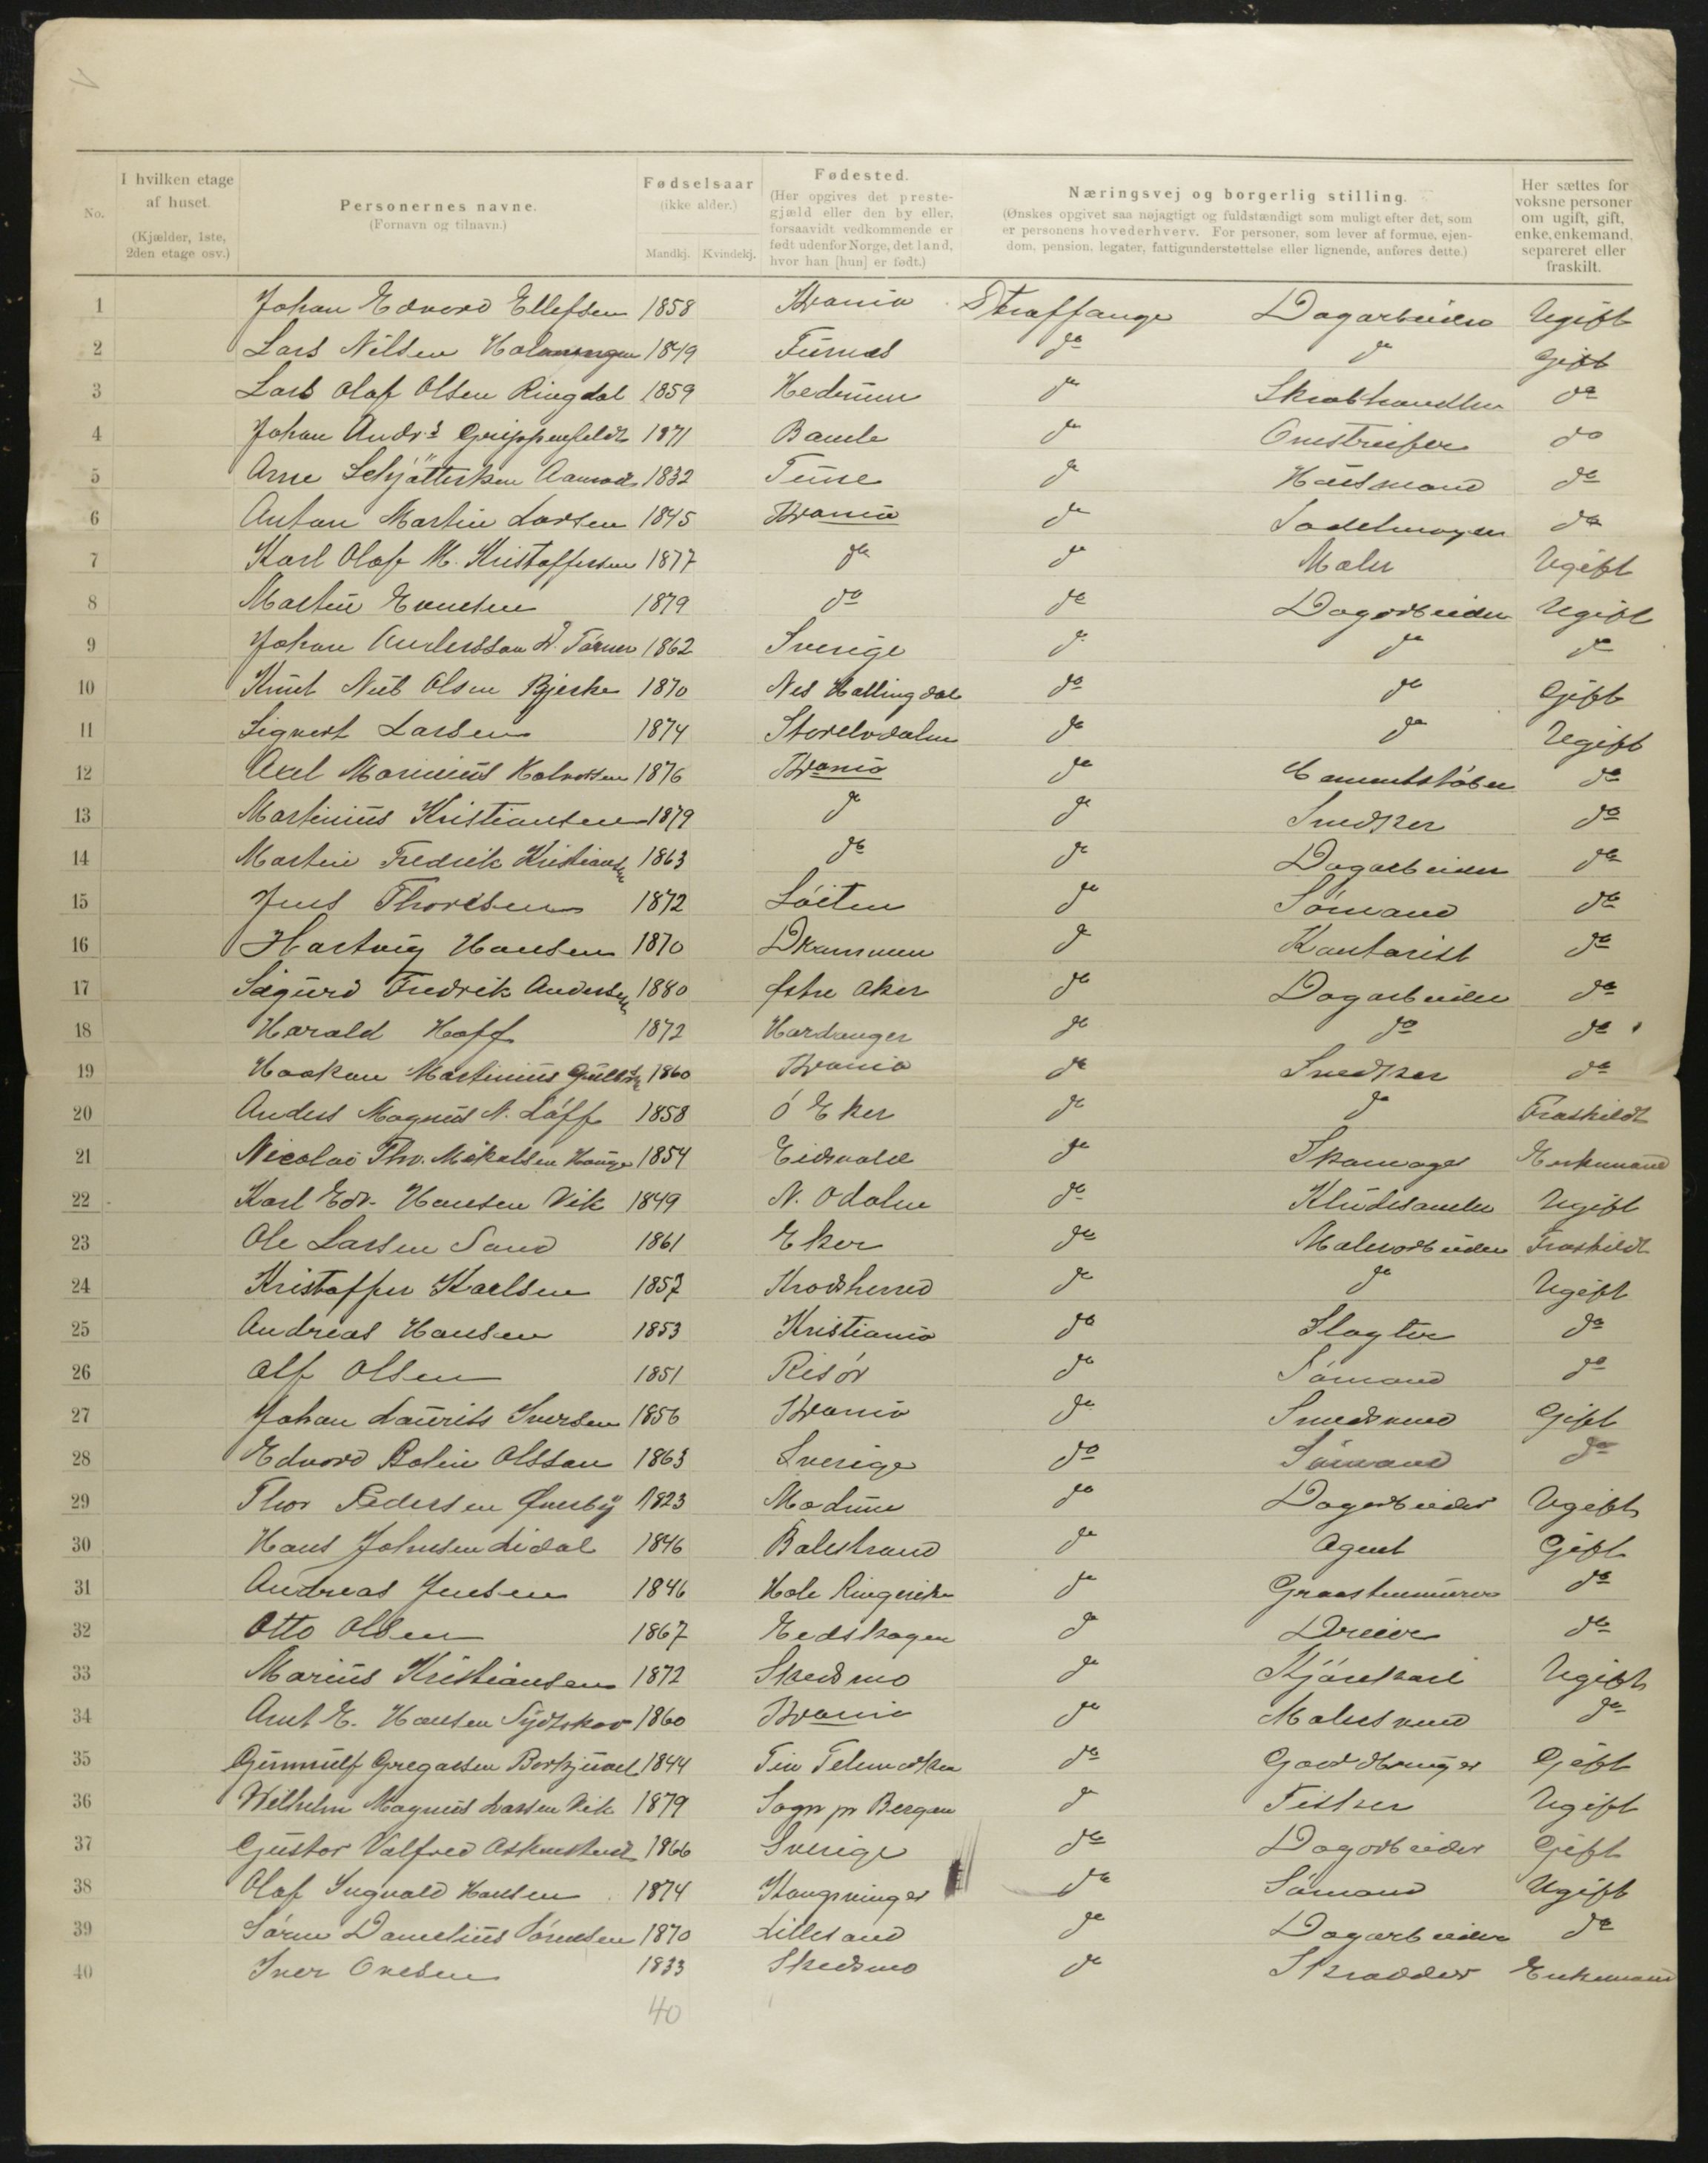 No.
I hvilken etage af huset.
(Kjælder, 1ste, 2den etage osv.)
Personernes navne.
(Fornavn og tilnavn.)
Fødselsaar
(ikke alder.)
Mandkj. Kvindekj.
Fødested.
(Her opgives det prestegjæld eller den by eller, forsaavidt vedkommende er født udenfor Norge, det land, hvor han [hun] er født.)
Næringsvej og borgerlig stilling.
(Ønskes opgivet saa nøjagtigt og fuldstændigt som muligt efter det, som er personens hovederhverv. For personer, som lever af formue, ejendom, pension, legater, fattigunderstøttelse eller lignende, anføres dette.)
Her sættes for voksne personer om ugift, gift, enke, enkemand, separeret eller fraskilt.
1 Johan Edvard Ellefsen 1858 Krania Straffange Dagarbeider Ugift
2 Lars Nilsen 1849 Furnes do do Gift
3 Lars Olaf Olsen Ringdal 1859 Hedrum do Skrabhandler do
4 Johan Andrs Grippenfeldt 1871 Bamle do Omstreifer do
5 Arne Aamodt 1832 Tune do Husmand do
6 Anton Martin Larsen 1845 Krania do Sadelmager do
7 Karl Olaf M. Kristoffersen 1877 do do Maler Ugift
8 Martin Evensen 1879 do do Dagarbeider Ugift
9 Johan Andersson 1862 Sverige do do do
10 Knut Nub Olsen Bjerke 1870 Nes Hallingdal do do Gift
11 Sigvert Larsen 1874 Storelvdalen do do Ugift
12 Axel Marinius Halvorsen 1876 Krania do Cementstøber do
13 Martinius Kristiansen 1879 do do Snedker do
14 Martin Fredrik Kristiansen 1863 do do Dagarbeider do
15 Jens Thoresen 1872 Løiten do Sømand do
16 Hartvig Hansen 1870 Drammen do Kontorist do
17 Sigurd Fredrik Andersen 1880 Østre Aker do Dagarbeider do
18 Harald Hoff 1872 Hardanger do do do
19 Haakon Martinius 1860 Krania do Snedker do
20 Anders Magnus N. Løff 1858 Ø Eker do do Fraskildt
21 Nicolai Thv. Mikalsen Hauge 1854 Eidsvold do Skomager Enkemand
22 Karl Edv. Hansen Vik 1849 N. Odalen do Kludesamler Ugift
23 Ole Larsen Sand 1861 Eker do Malerarbeider Fraskildt
24 Kristoffer Karlsen 1857 Krodsherred do do Ugift
25 Andreas Hansen 1853 Kristiania do Slagter do
26 Alf Olsen 1851 Risør do Sømand do
27 Johan Laurits Iversen 1856 Krania do Smedsvend Gift
28 Edvard Bolin Olsson 1863 Sverige do Sømand do
29 Thor Pedersen Øverby 1823 Modum do Dagarbeider Ugift
30 Hans Johnsen Lidal 1846 Balestrand do Agent Gift
31 Andreas Jensen 1846 Hole Ringerike do Graastenmurer do
32 Otto Olsen 1867 Eidskogen do Dreier do
33 Marius Kristiansen 1872 Skedsmo do Kjørekarl Ugift
34 Arnt E. Hansen Sydskov 1860 Krania do Malersvend do
35 Gunnulf Gregarsen 1844 Tin Telemarken do Gaardbruger Gift
36 Wilhelm Magnus Larsen Vik 1879 Sogn pr Bergen do Fisker Ugift
37 Gustav Valfred 1866 Sverige do Dagarbeider Gift
38 Olaf Ingvald Hansen 1874 Kongsvinger do Sømand Ugift
39 Søren Danelius Sørensen 1870 Lillesand do Dagarbeider do
40 Iver Ovesen 1833 Skedsmo do Skrædder Enkemand
40